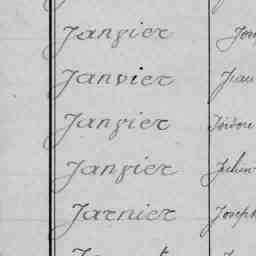 Janvier
Janvier Jean
Janvier Isidore
Janvier Julien
Jarnier Joseph